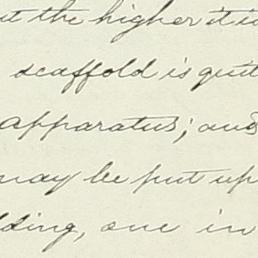 ut the higher it is
scaffold is quit
apparatus; and
may be put up
lding, one in